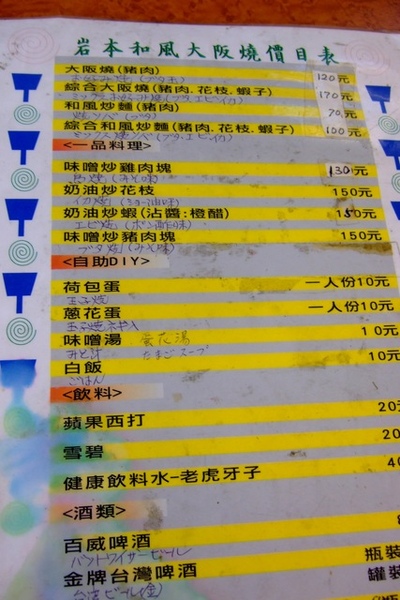 岩本和風大阪燒價目表
大阪燒(豬肉) 120元
お好み焼(ブタ玉)
綜合大阪燒(豬肉.花枝.蝦子) 170元
ミックスお好み焼(ブタ,エビ,イカ)
和風炒麵(豬肉) 70元
焼ソバ(ブタ)
綜合和風炒麵(豬肉.花枝.蝦子) 100元
ミックス焼ソバ(ブタ,エビ,イカ)
<一品料理>
味噌炒雞肉塊 130元
奶油炒花枝 150元
奶油炒蝦(沾醬:橙醋) 150元
味噌炒豬肉塊 150元
ブタ焼(みそ味)
<自助DIY>
荷包蛋 一人份10元
玉子焼
蔥花蛋 一人份10元
味噌湯 蛋花湯 10元
みそ汁 たまごスープ
白飯 10元
ごはん
<飲料>
蘋果西打 20元
雪碧 20
健康飲料水-老虎牙子 40
<酒類>
百威啤酒 瓶裝
バドワイザービール
金牌台灣啤酒 罐裝
台湾ビール(金) 瓶